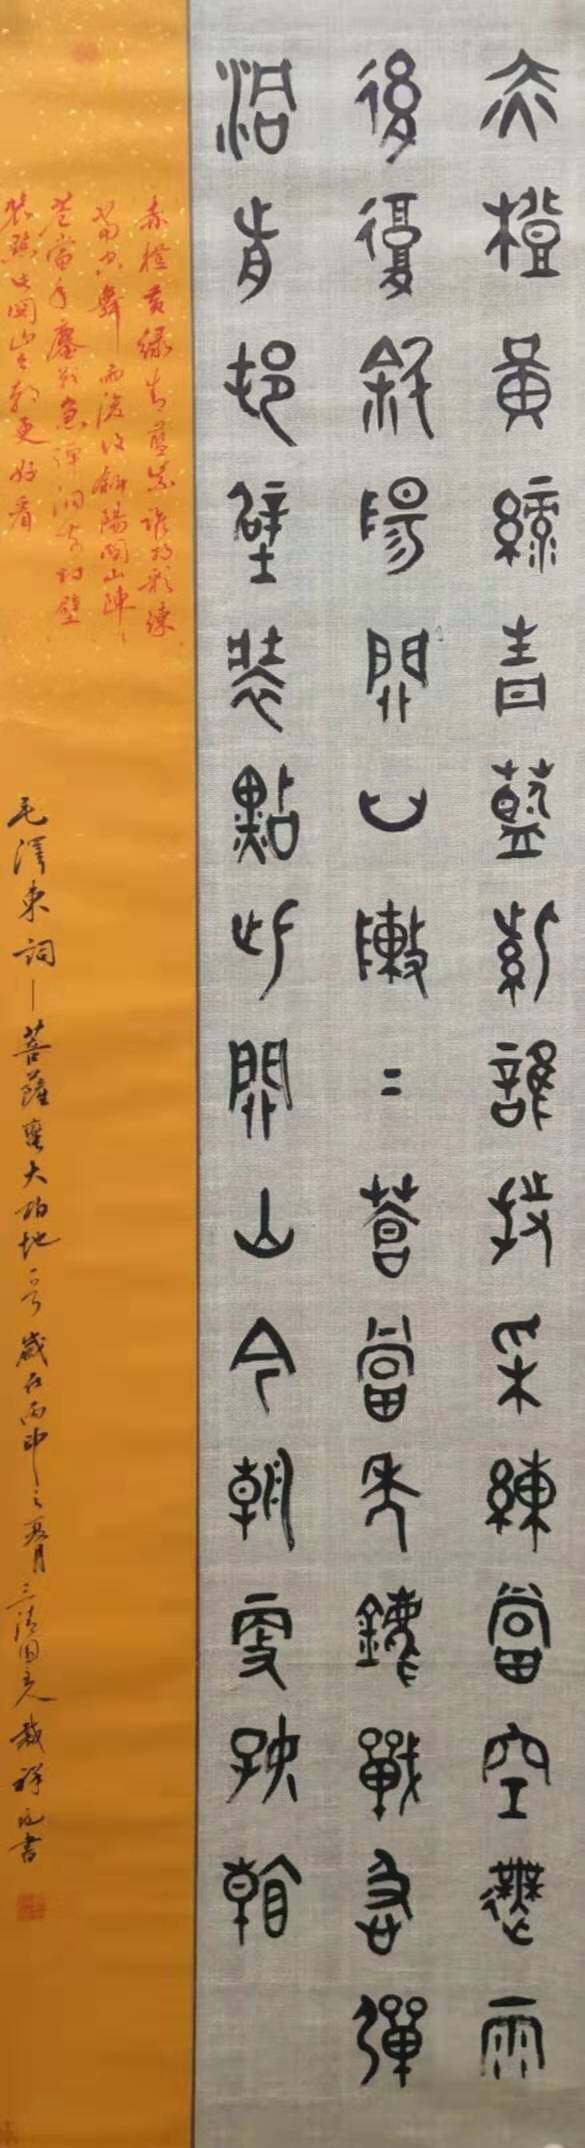 赤橙黃綠青藍紫誰持采練當空舞雨
後復斜陽關山陣〓蒼當年鏖戰急彈
洞前邨壁裝點此關山今朝更好看
赤橙黄綠青藍紫誰持彩練
當空舞雨後復斜陽關山陣
蒼當年鏖戰急彈洞前村壁
裝點此關山今朝更好看
毛澤東詞一菩薩蠻大柏地 歲在丙申之夏月三清 書